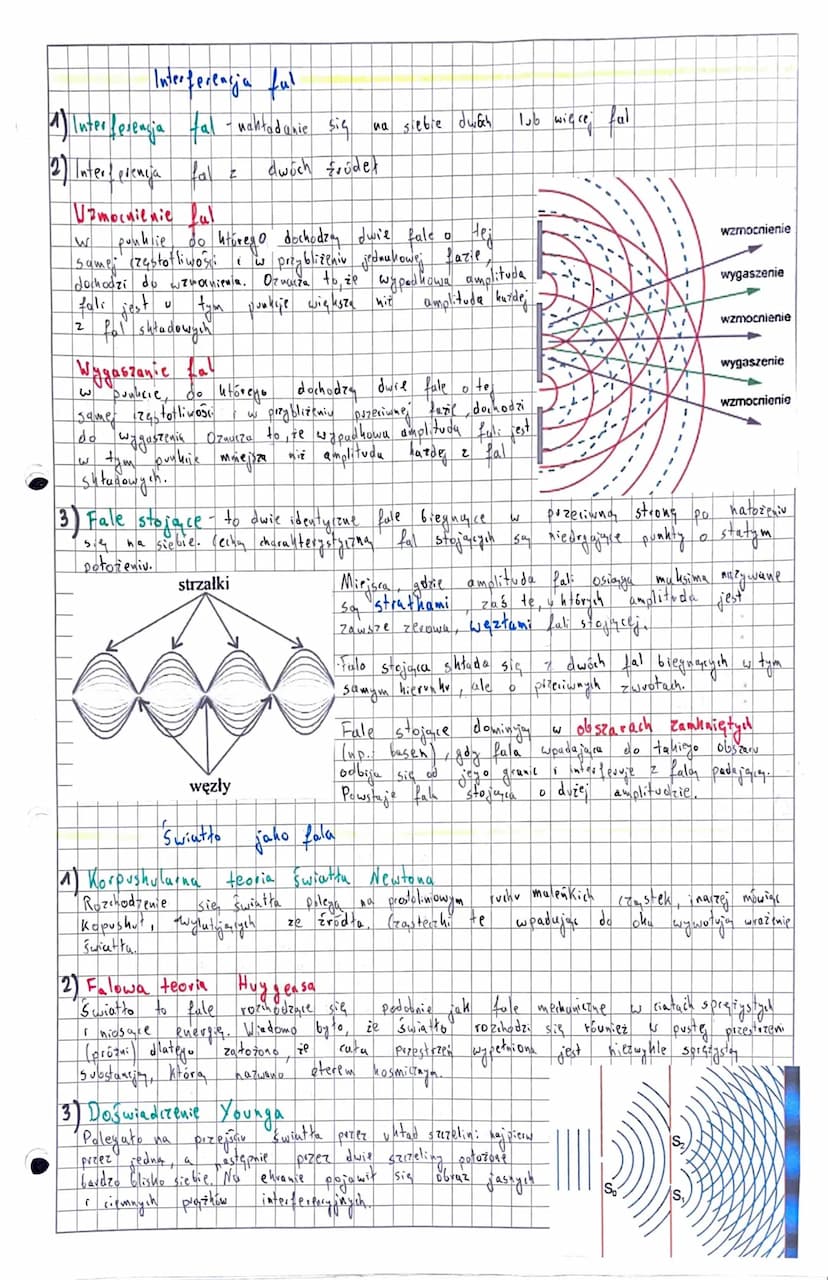 Interferencja fal
1) Interferencja fal - nakładanie się na siebie dwóch lub więcej fal
2) Interferencja fal z dwóch źródeł
Wzmocnienie fal
w punkcie, do którego dochodzą dwie fale o tej
samej częstotliwości i w przybliżeniu jednakowej fazie,
dochodzi do wzmocnienia. Oznacza to, że wypadkowa amplituda
fali jest w tym punkcie większa niż amplituda każdej
z fal składowych
wzmocnienie
wygaszenie
wzmocnienie
wygaszenie
wzmocnienie
Wygaszanie fal
w punkcie, do którego dochodzą dwie fale o tej
samej częstotliwości i w przybliżeniu przeciwnej fazie, dochodzi
do wygaszenia Oznacza to, że wypadkowa amplituda fali jest
w tym punkcie mniejsza niż amplituda każdej z fal
składowych.
3) Fale stojące - to dwie identyczne fale biegnące w przeciwną stronę po nałożeniu
się na siebie. Cechą charakterystyczną fal stojących są niedrgające punkty o stałym
położeniu.
strzałki
węzły
Miejsca, gdzie amplituda fali osiąga maksima nazywane
są strzałkami, zaś te, w których amplituda jest
zawsze zerowa, węzłami fali stojącej.
Fala stojąca składa się z dwóch fal biegnących w tym
samym kierunku, ale o przeciwnych zwrotach.
Fale stojące dominują w obszarach zamkniętych
(np.: basen), gdy fala wpadająca do takiego obszaru
odbija się od jego granic i interferuje z falą padającą.
Powstaje fala stojąca o dużej amplitudzie.
Światło jako fala
1) Korpuskularna teoria światła Newtona
Rozchodzenie się światła polega na prostoliniowym ruchu maleńkich cząstek, inaczej mówiąc
kopuskuł, wylatujących ze źródła. Cząsteczki te wpadając do oka wywołują wrażenie
światła.
2) Falowa teoria Huygensa
Światło to fale rozchodzące się podobnie jak fale mechaniczne w ciałach sprężystych
i niosące energię. Wiadomo było, że światło rozchodzi się również w pustej przestrzeni
(próżni) dlatego założono, że cała przestrzeń wypełniona jest niezwykle sprężystą
substancją, którą nazwano eterem kosmicznym.
3) Doświadczenie Younga
Polegało na przejściu światła przez układ szczelin: najpierw
przez jedną, a następnie przez dwie szczeliny położone
bardzo blisko siebie. Na ekranie pojawił się obraz jasnych
i ciemnych prążków interferencyjnych.
S₀
S₂
S₁